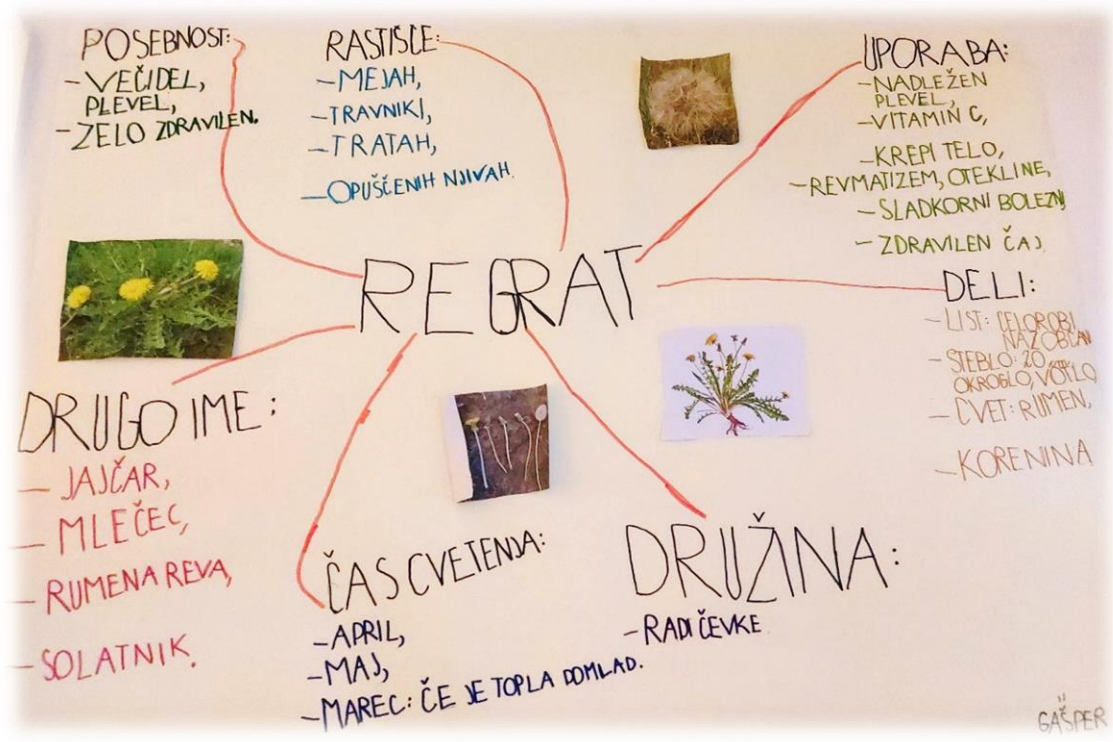 POSEBNOST:
- VEČIDEL,
PLEVEL,
- ZELO ZDRAVILEN.
RASTIŠČE:
- MEJAH,
- TRAVNIKI,
- TRATAH,
- OPUŠČENIH NJIVAH.
UPORABA:
- NADLEŽEN
PLEVEL,
- VITAMIN C,
- KREPI TELO,
- REVMATIZEM, OTEKLINE,
- SLADKORNI BOLEZNI
- ZDRAVILEN ČAJ.
REGRAT
DELI:
- LIST: CELOROBI
NAZOBČAN
- STEBLO: 20 cm
OKROGLO, VOTLO,
- CVET: RUMEN,
- KORENINA
DRUGO IME:
- JAJČAR,
- MLEČEC,
- RUMENA REVA,
- SOLATNIK.
ČAS CVETENJA:
- APRIL,
- MAJ,
- MAREC: ČE JE TOPLA DOMLAD.
DRUŽINA:
- RADIČEVKE
GAŠPER